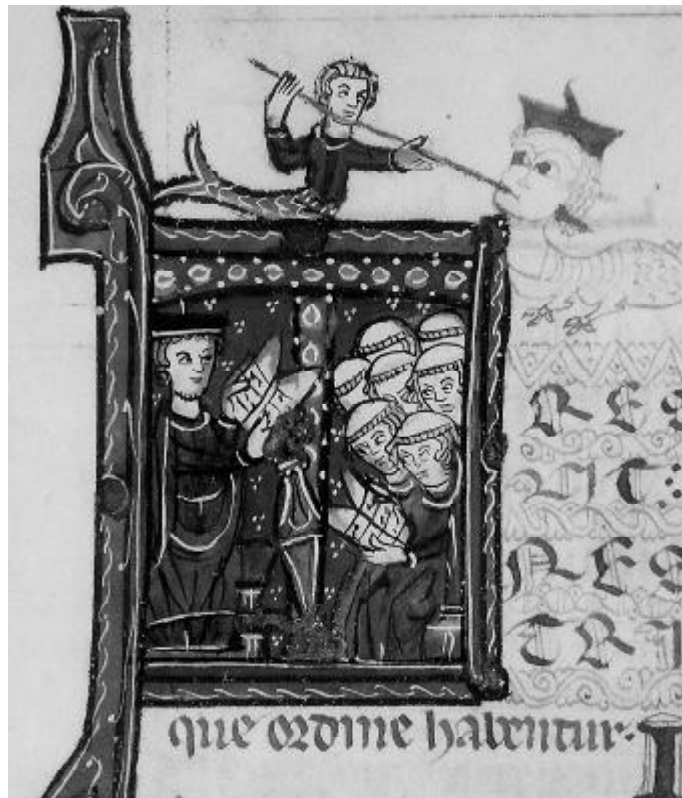 RES
UIT:
NES
TRI
que ordine habentur.